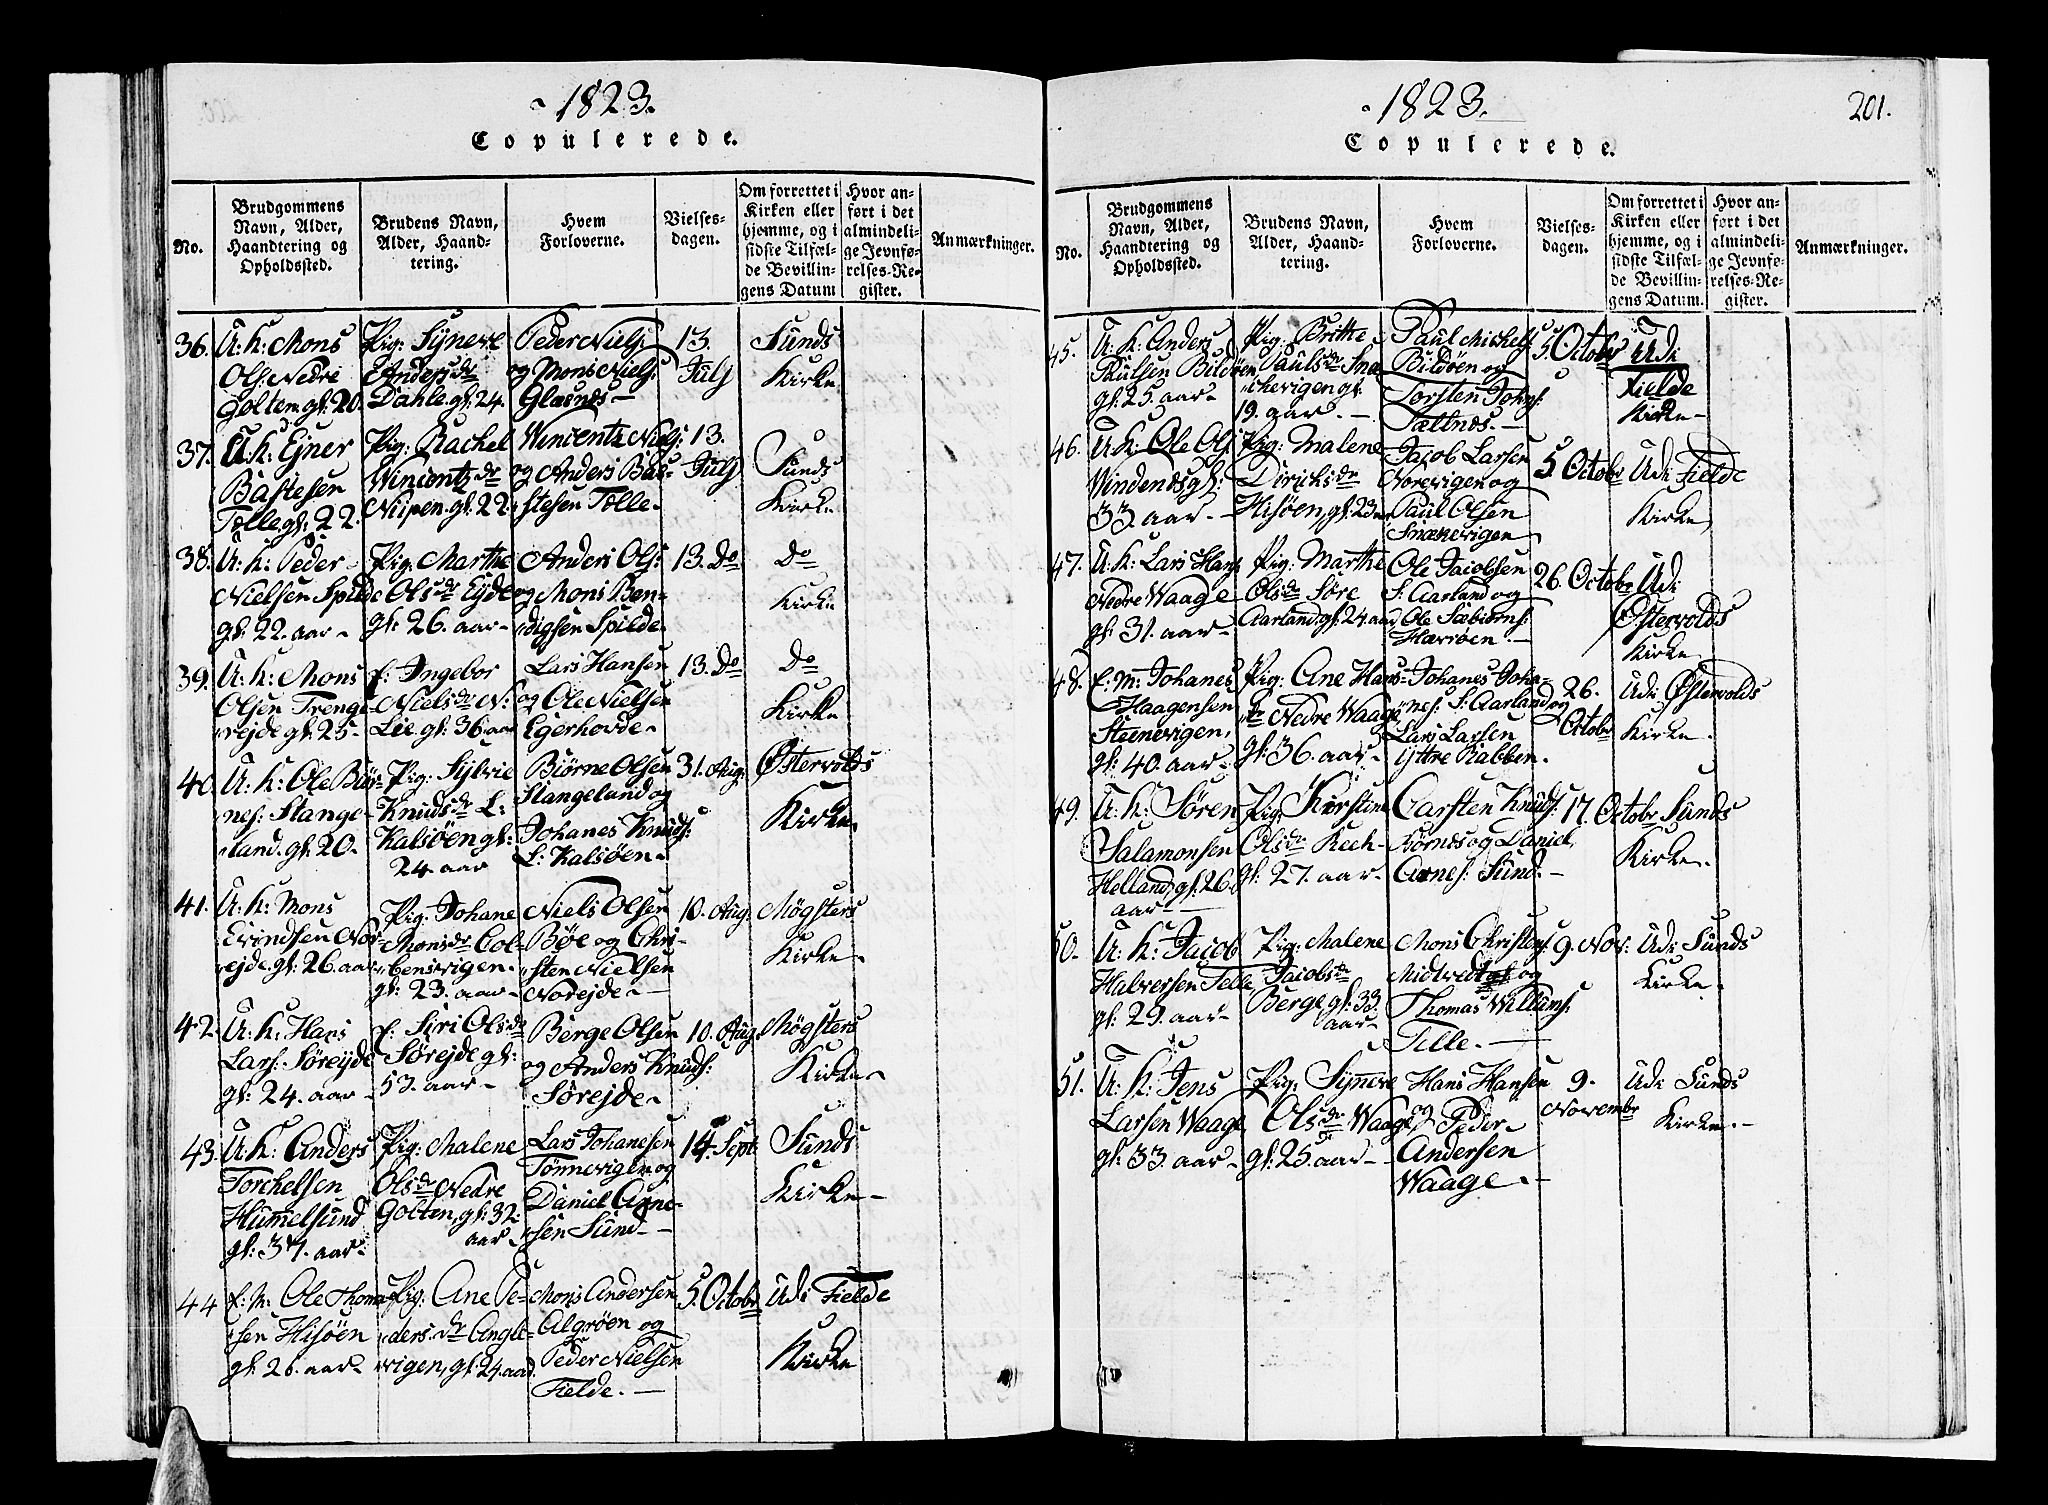 1823.
Copulerede.
No.
Brudgommens
Navn, Alder,
Haandtering og
Opholdssted.
Brudens Navn,
Alder, Haand-
tering.
Hvem
Forloverne.
Vielses-
dagen.
Om forrettet i
Kirken eller
hjemme, og i
sidste Tilfæl-
de Bevillin-
gens Datum
Hvor an-
ført i det
almindeli-
ge Jevnfø-
relses-Re-
gister.
Anmærkninger.
36.
U: K: Mons
Ols: Nedre
Golten gl: 20.
Pig: Syneve
Andersdr
Dahle gl: 24.
Peder Niels:
og Mons Niels:
Glæsnes-
13.
July
Sunds
Kirke
37.
U: K: Ejner
Bastesen
Tolle gl: 22.
Pig: Rachel
Wincentzdr
Nipen gl: 22.
Wincentz Niels:
og Anders Bas-
stesen Tolle-
13.
July
Sunds
Kirke
38.
U: K: Peder
Nielsen Spilde
gl: 22. aar-
Pig: Marthe
Olsdr Eyde
gl: 26. aar-
Anders Ols:
og Mons Ben-
digsen Spilde-
13. Do
Do
Kirke
39.
U: K: Mons
Olsen Trenge-
rejde gl: 25-
f: Ingebor
Nielsdr N:
Lie gl: 36 aar
Lars Hansen
og Ole Nielsen
Egerhovde-
13. Do
Do
Kirke
40.
U: K: Ole Biør-
nes: Stange-
land gl: 20.
Pig: Sylvie
Knudsdr L:
Kalsøen gl:
24 aar
Biørne Olsen
Stangeland og
Johanes Knuds:
L: Kalsøen-
31. Aug:
Østervolds
Kirke.
41.
U: K: Mons
Evindsen Nor-
ejde gl: 26. aar
Pig: Johane
Monsdr Col-
bensvigen-
gl: 23. aar-
Niels Olsen
Bøe og Chri-
sten Nielsen
Norejde-
10. Aug:
Møgsters
Kirke-
42.
U: K: Hans
Lars: Sørejde
gl: 24. aar-
f: Siri Olsdr
Sørejde gl:
53. aar-
Berge Olsen
og Anders Knuds:
Sørejde-
10. Aug:
Møgsters
Kirke-
43.
U: K: Anders
Torchelsen
Hummelsund
gl: 37. aar-
Pig: Malene
Olsdr Nedre
Golten, gl: 32.
aar-
Lars Johanesen
Tønnevigen og
Daniel Arne-
sen Sund-
14. Sept
Sunds
Kirke-
44
f: M: Ole Thoma-
sen Hisøen
gl: 26. aar-
Pig: Ane Pe-
dersdr Angle-
vigen, gl: 24 aar
Mons Andersen
Algrøen og
Peder Nielsen
Fielde.-
5. Octobr
Udi Fielde
Kirke
1823.
201.
Copulerede.
No.
Brudgommens
Navn, Alder,
Haandtering og
Opholdssted.
Brudens Navn,
Alder, Haand-
tering.
Hvem
Forloverne.
Vielses-
dagen.
Om forrettet i
Kirken eller
hjemme, og i
sidste Tilfæl-
de Bevillin-
gens Datum.
Hvor an-
ført i det
almindeli-
ge Jevnfø-
relses-Re-
gister.
Anmærkninger.
45.
U: K: Anders
Paulsen Bildøen
gl: 25. aar-
Pig: Britte
Paulsdr Snæ-
chevigen gl:
19. aar.-
Paul Michels:
Bildøen og
Torsten Johns:
Tellnes.-
5 Octobr
Udi
Fielde
Kirke-
46.
U: K: Ole Ols:
Windenes gl:
33. aar-
Pig: Malene
Diricksdr
Hisøen, gl: 23 aar
Jacob Larsen
Norevigen og
Paul Olsen
Snækevigen
5 Octobr
Udi Fielde
Kirke
47.
U: K: Lars Hans:
Nedre Waage
gl: 31. aar-
Pig: Marthe
Olsdr Søre
Aarland gl: 24 aar
Ole Jacobsen
S: Aarland og
Ole Sæbiørns:
Hærøen.-
26. Octobr
Udi
Østervolds
Kirke
48.
f: M: Johanes
Haagensen
Steinevigen,
gl: 40. aar-
Pig: Ane Hans-
dr Nedre Waage
gl: 36. aar-
Johanes Joha-
nes: S: Aarland og
Lars Larsen
Yttre Rabben.
26.
Octobr
Udi Østervolds
Kirke.
49.
U: K: Søren
Salamonsen
Helland, gl: 26
aar-
Pig: Kirstine
Olsdr Kech-
gl: 27. aar-
Carsten Knuds:
Børnes og Daniel
Arnes: Sund.-
17. Octobr
Sunds
Kirke.
50.
U: K: Jacob
Halversen Telle,
gl: 29. aar-
Pig: Malene
Jacobsdr
Berge, gl: 33.
aar-
Mons Christens:
Midtvedt og
Thomas Willums:
Telle.-
9. Nov:
Udi Sunds
Kirke.
51.
U: K: Jens
Larsen Waage
gl: 33. aar-
Pig: Synneve
Olsdr Waage
gl: 25. aar-
Hans Hansen
og Peder
Andersen
Waage.-
9.
Novembr
Udi Sunds
Kirke.-